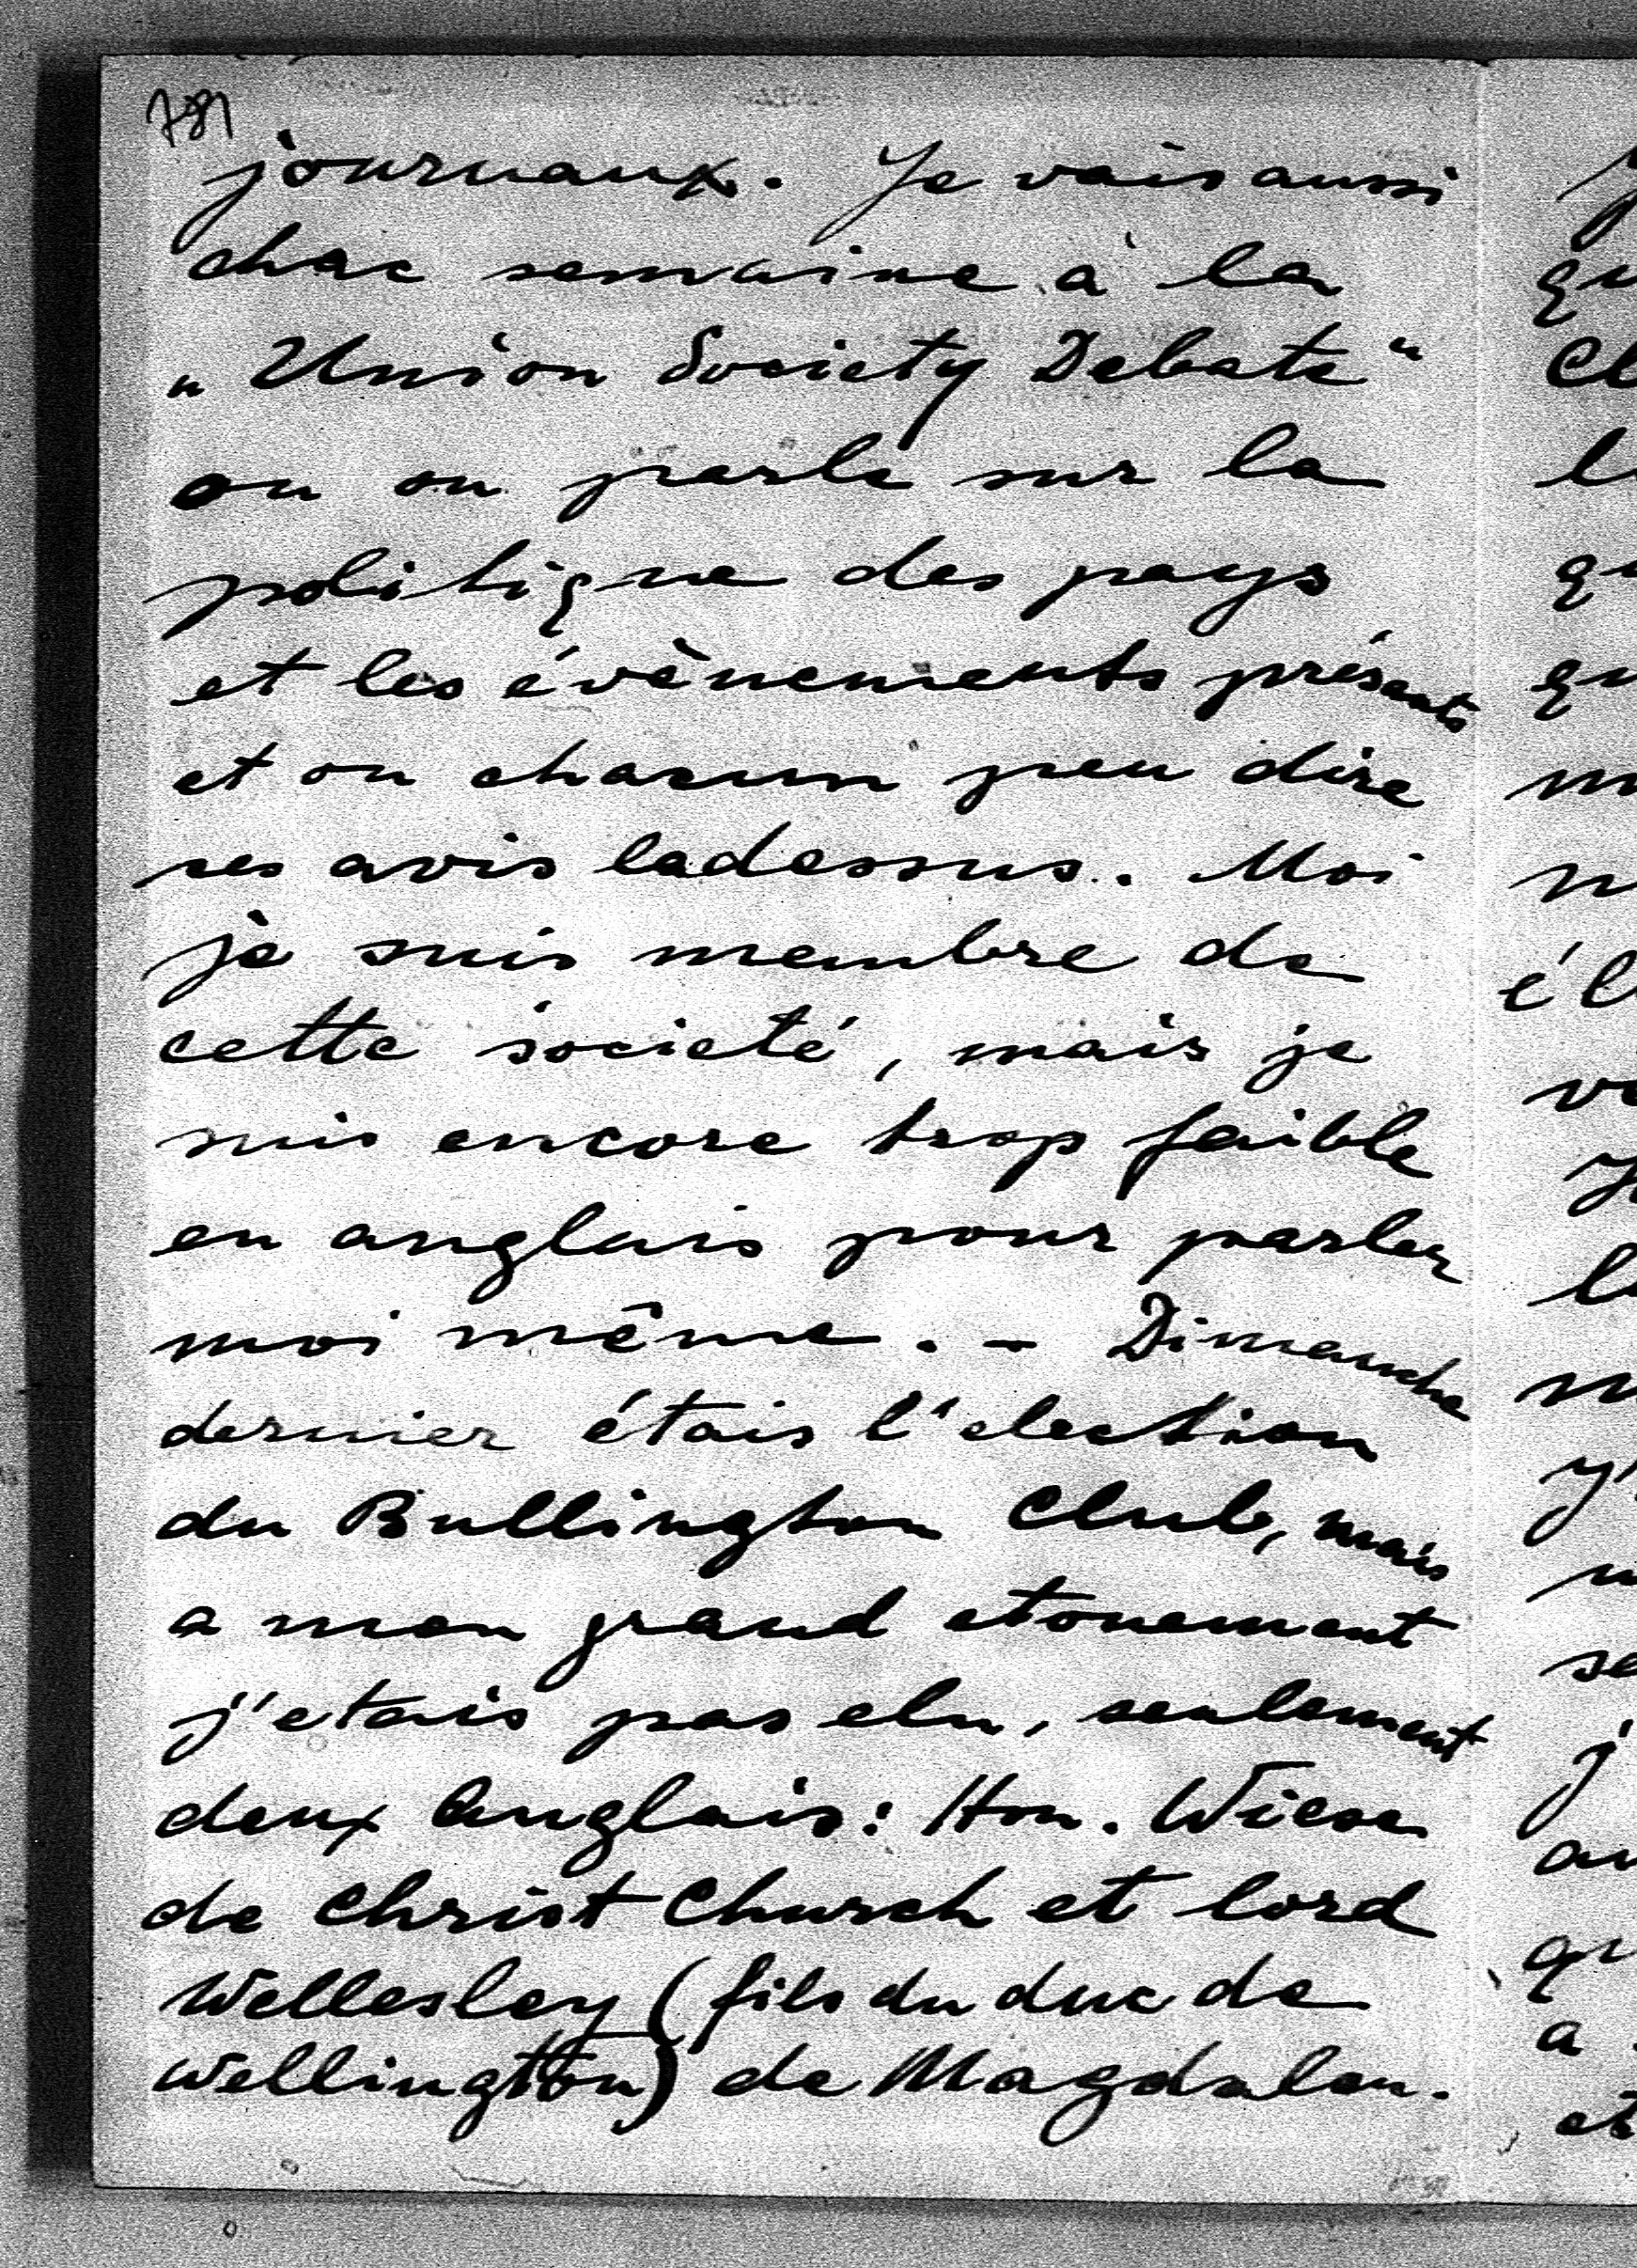 781
journaux. Je vais aussi
chac semaine à la
„Union Society Debate“
ou on parle sur la
politique des pays
et les évènements présents
et ou chacun peu dire
ses avis ladessus. Moi
je suis membre de
cette societé, mais je
suis encore trop faible
en anglais pour parler
moi même. – Dimanche
dernier étais l'election
du Bullington Club, mais
a mon grand etonement
j'etais pas elu, seulement
deux Anglais: Hon. Wiese
de Christ Church et lord
Wellesley (fils du duc de
Wellington) de Magdalen.